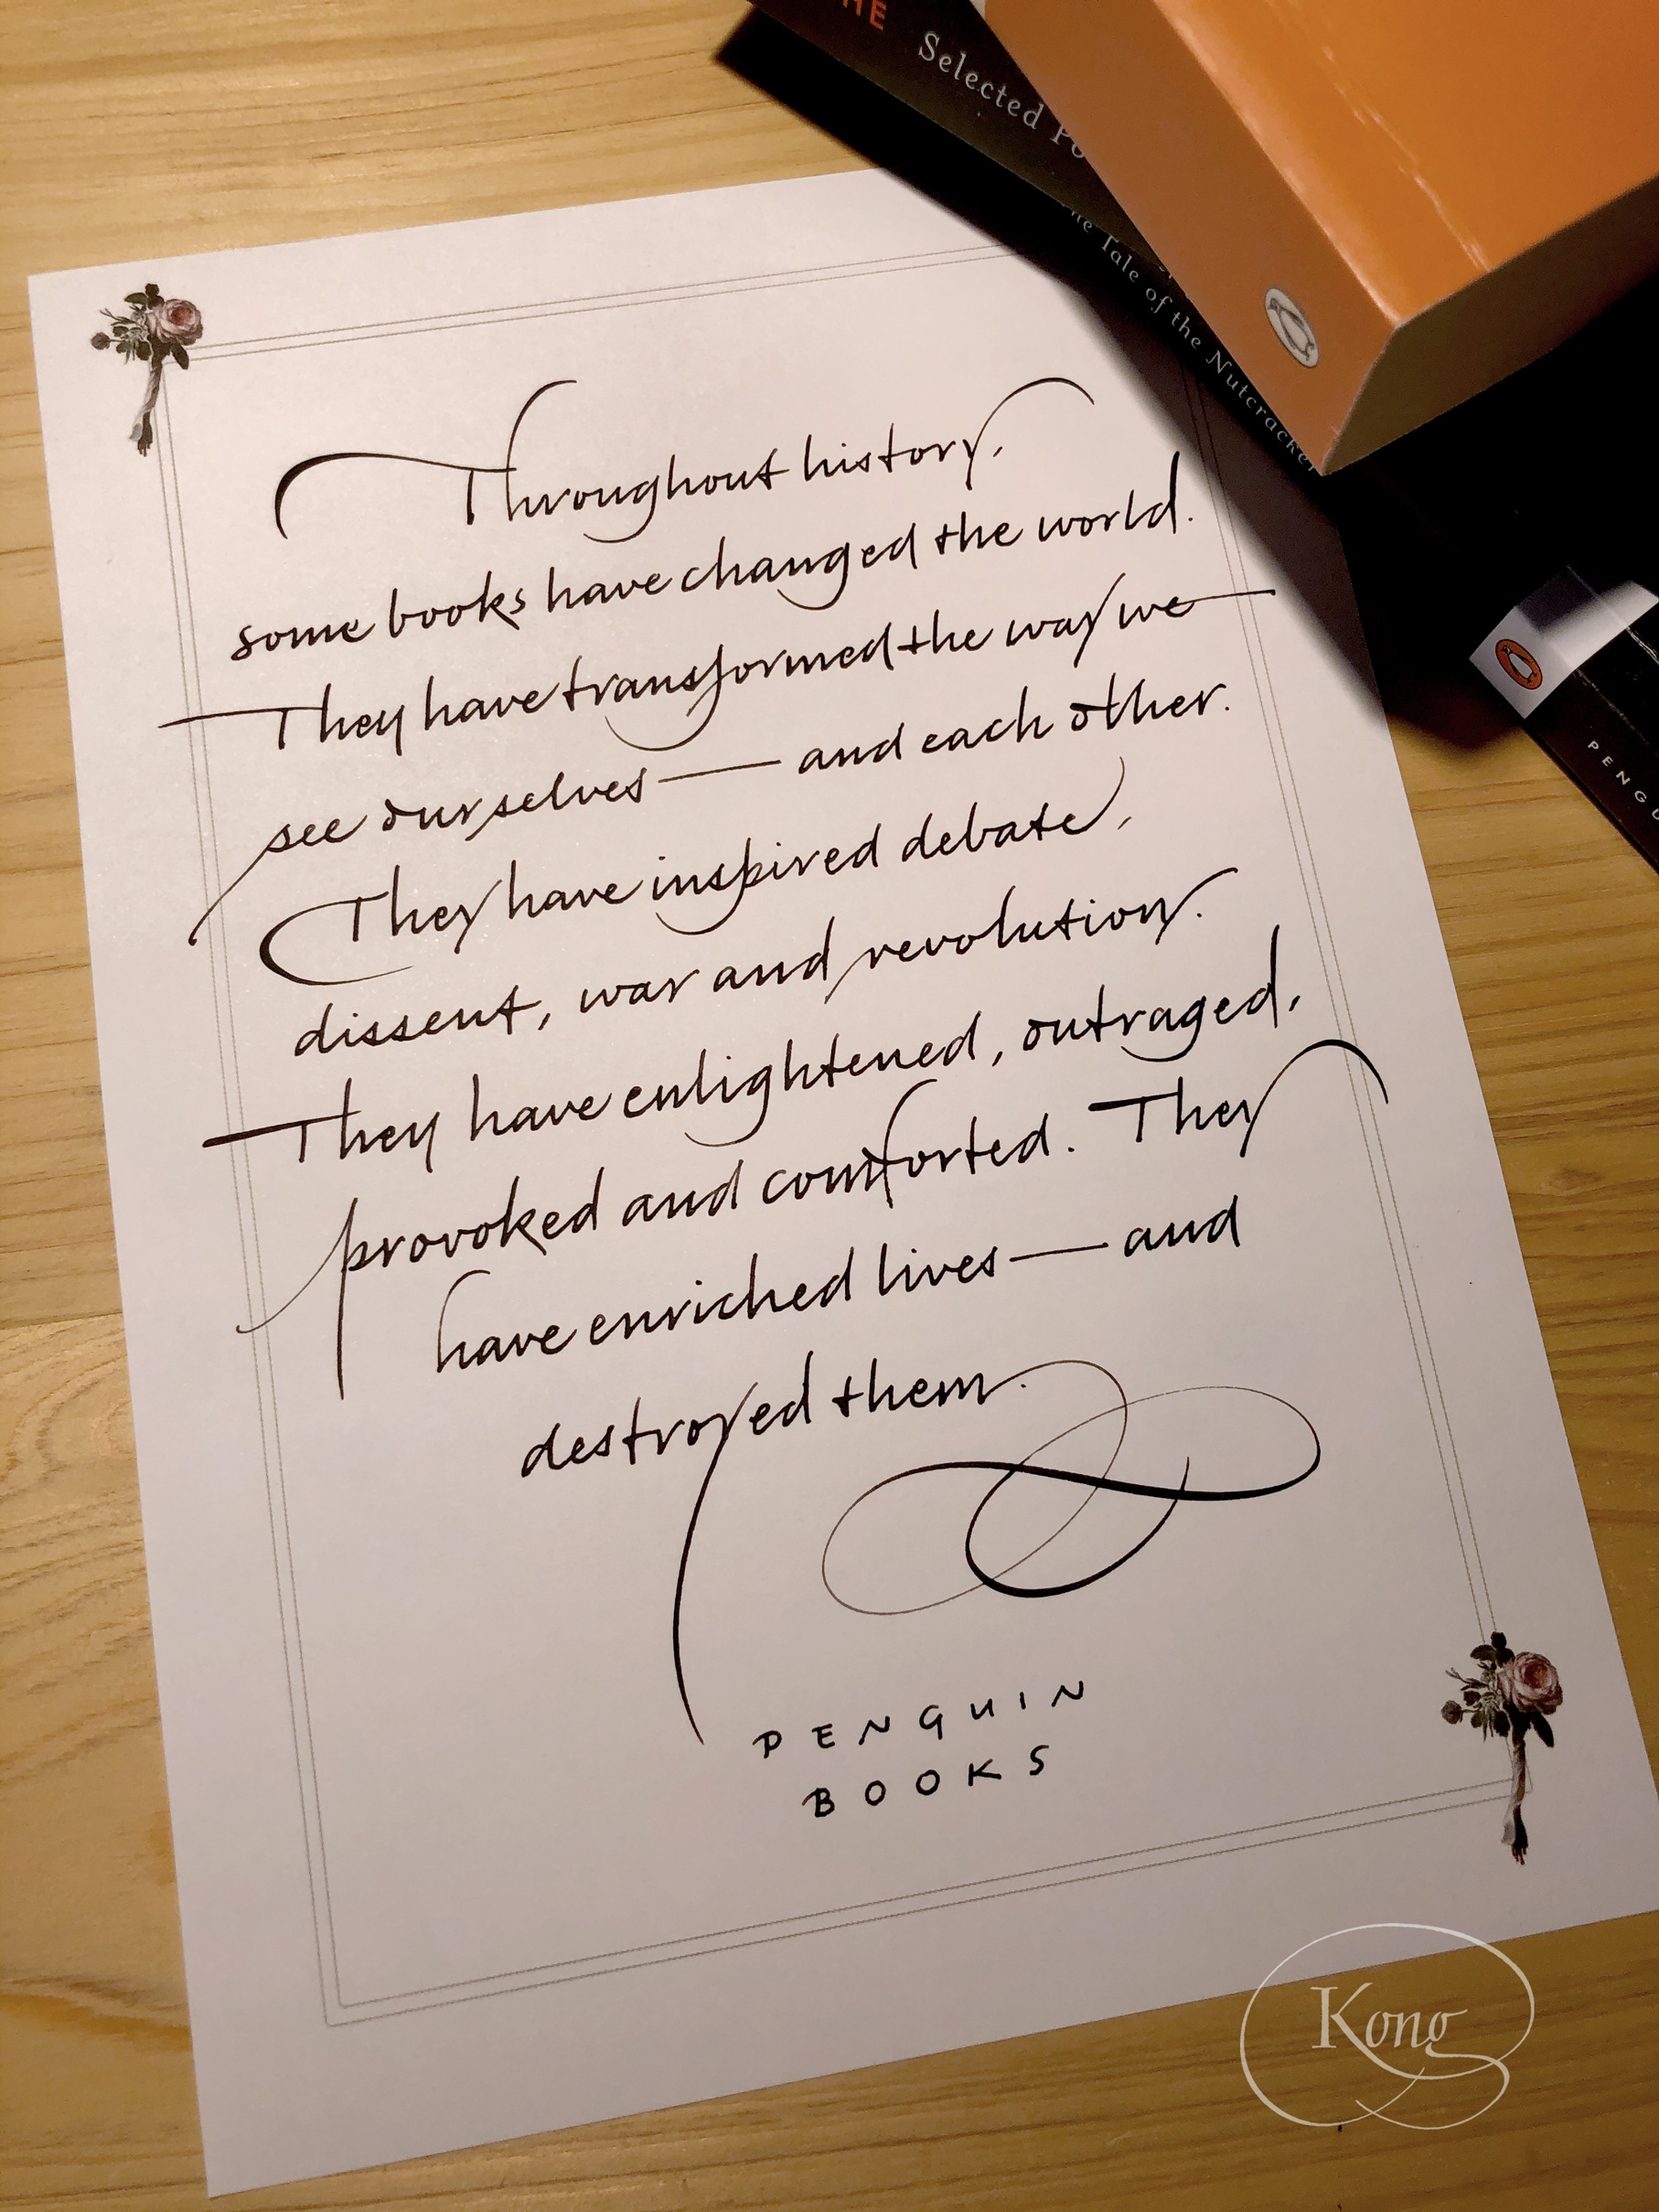 HE Selected Po
he Tale of the Nutcracker
PENGU
Throughout history,
some books have changed the world.
They have transformed the way we
see ourselves — and each other.
They have inspired debate,
dissent, war and revolution.
They have enlightened, outraged,
provoked and comforted. They
have enriched lives — and
destroyed them.
PENGUIN
BOOKS
Kong